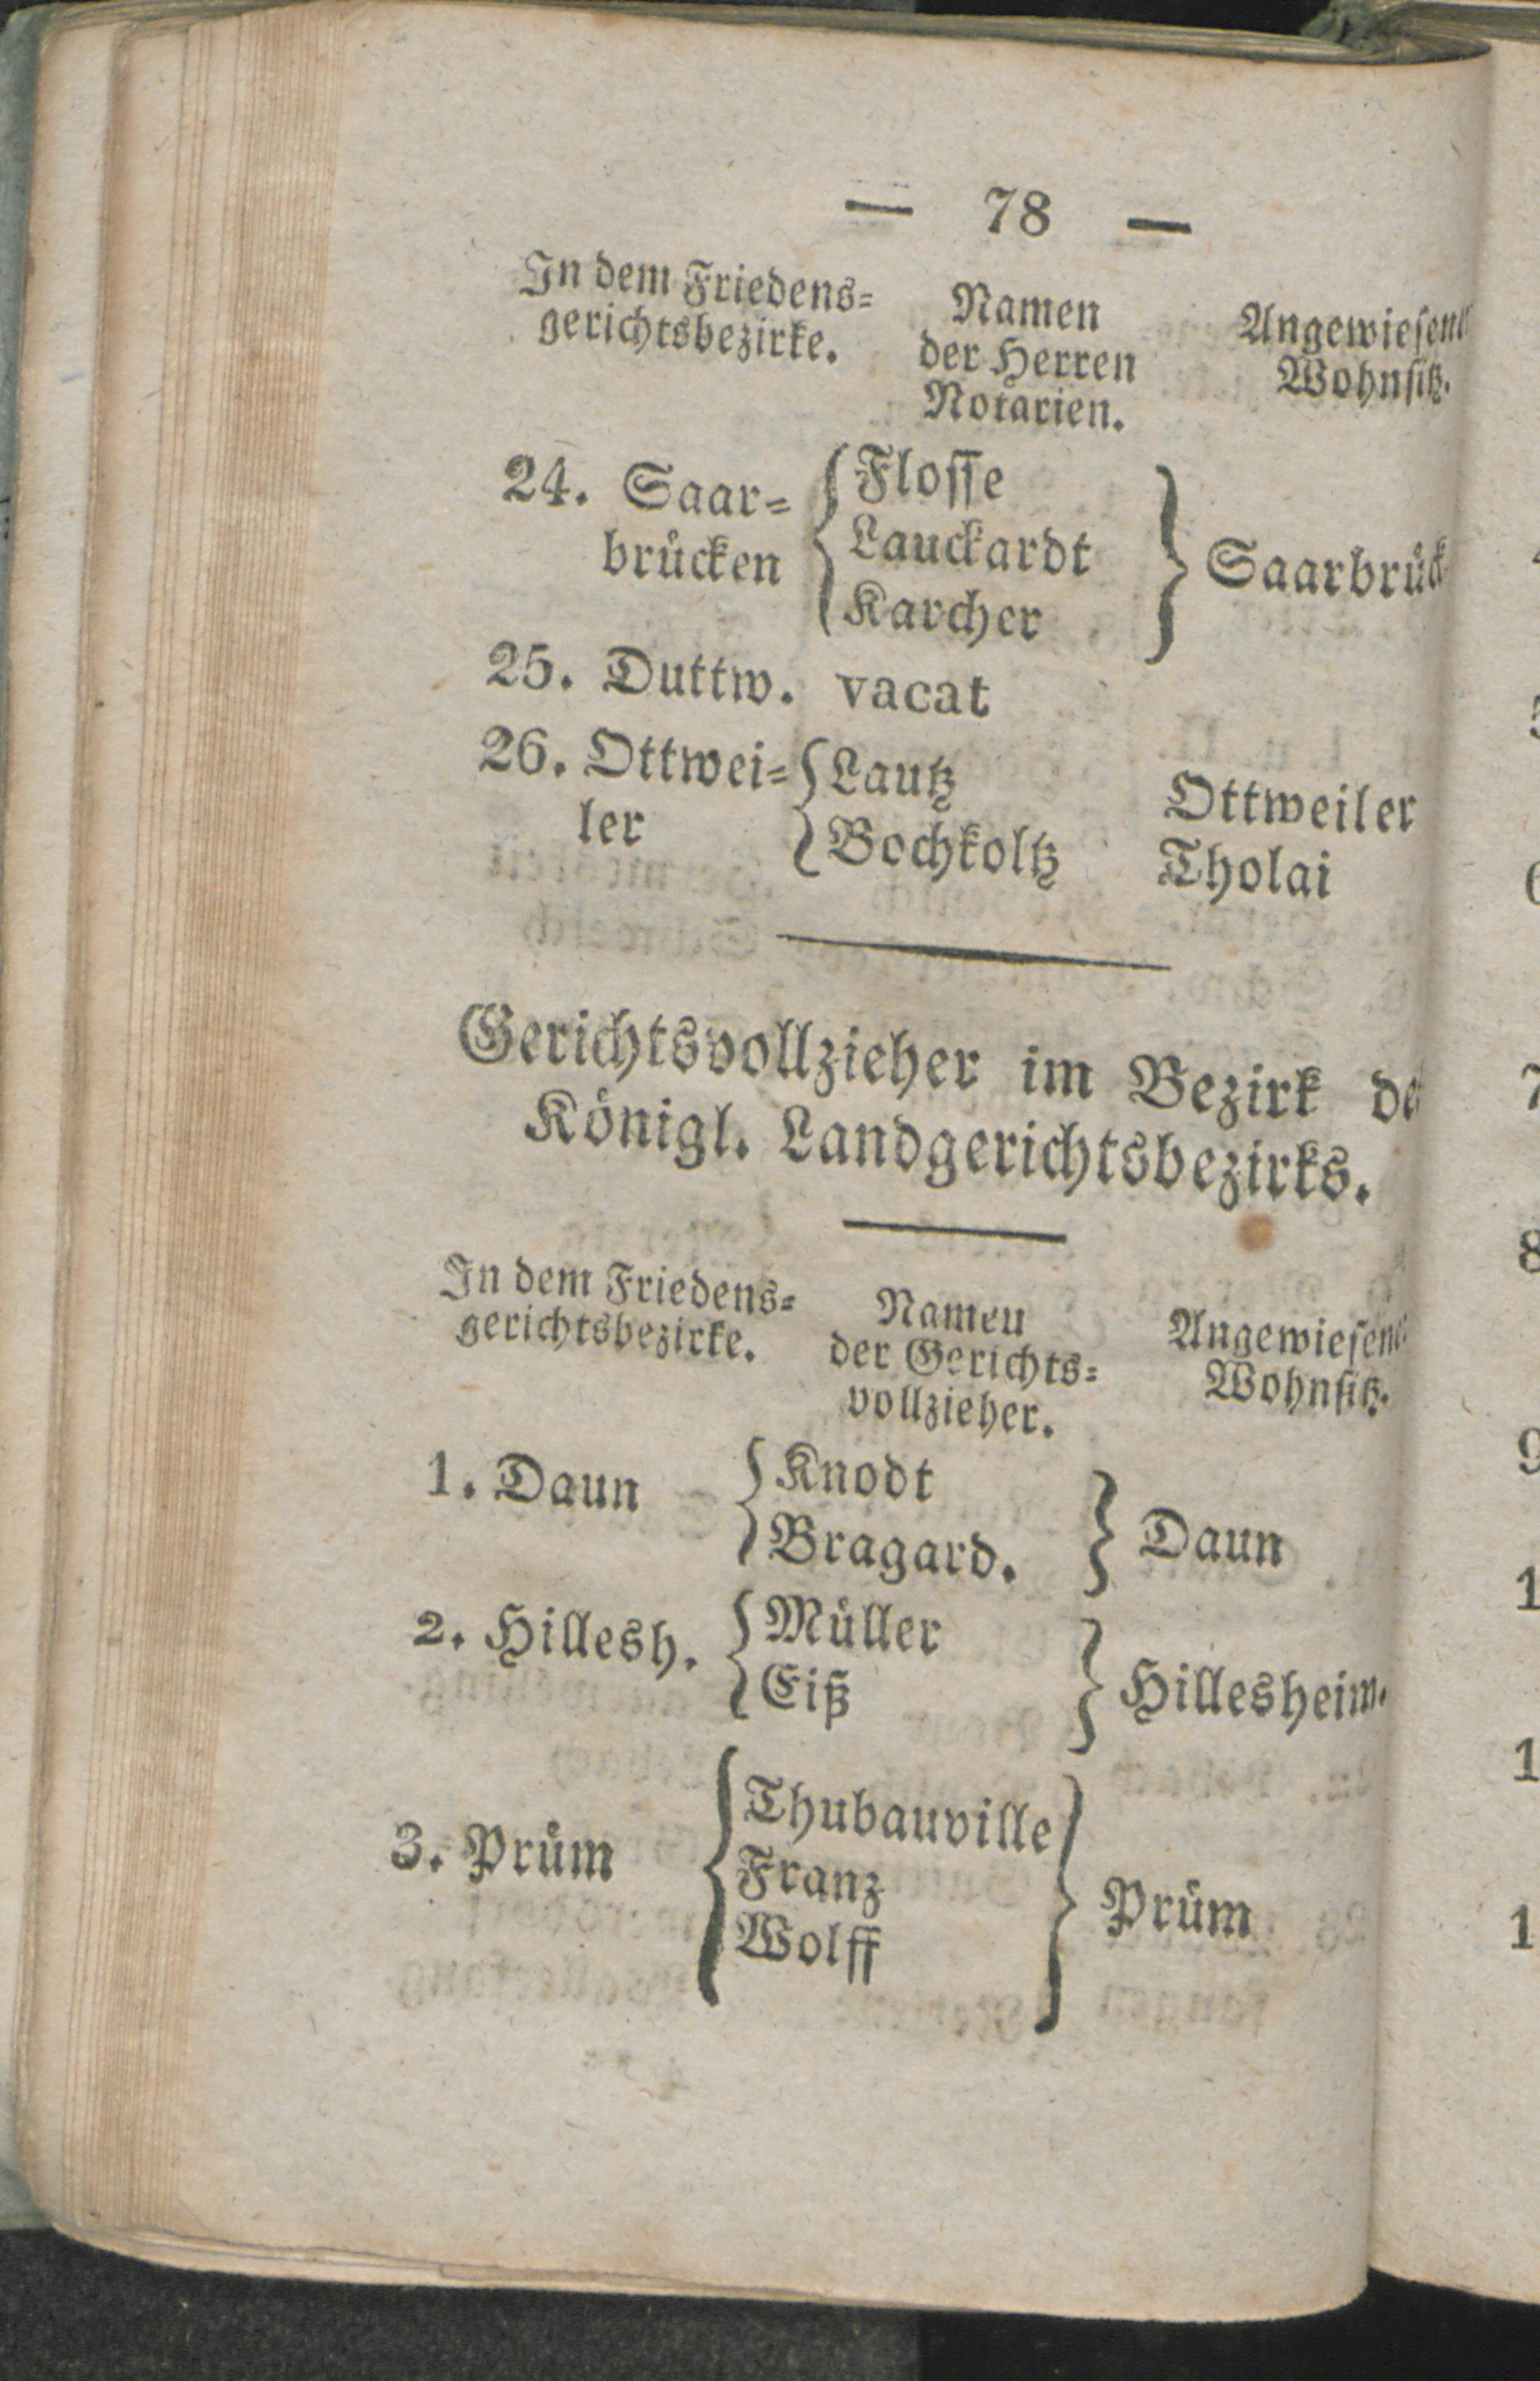 — 78 —
In dem Friedens-
gerichtsbezirke.
Namen
der Herren
Notarien.
Wohnsitz.
24. Saar-
brücken
Flosse
Lauckardt
Karcher
25. Duttw. vacat
26. Ottwei-
ler
Lautz
Bochkoltz
Ottweiler
Tholai
Gerichtsvollzieher im Bezirk
Königl. Landgerichtsbezirks.
In dem Friedens-
gerichtsbezirke.
Nameu
der Gerichts-
vollzieher.
Wohnsitz.
1. Daun
Knodt
Bragard.
Daun
2. Hillesh.
Müller
Eiß
Hillesheim.
3. Prüm
Thubauville
Franz
Wolff
Prüm